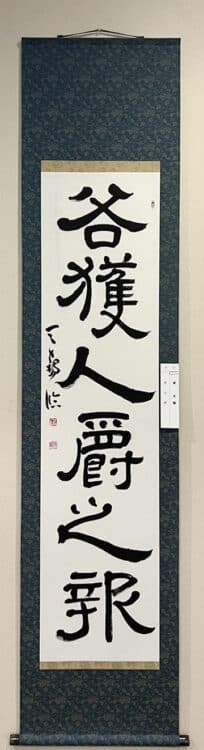 各獲人爵之報
臨